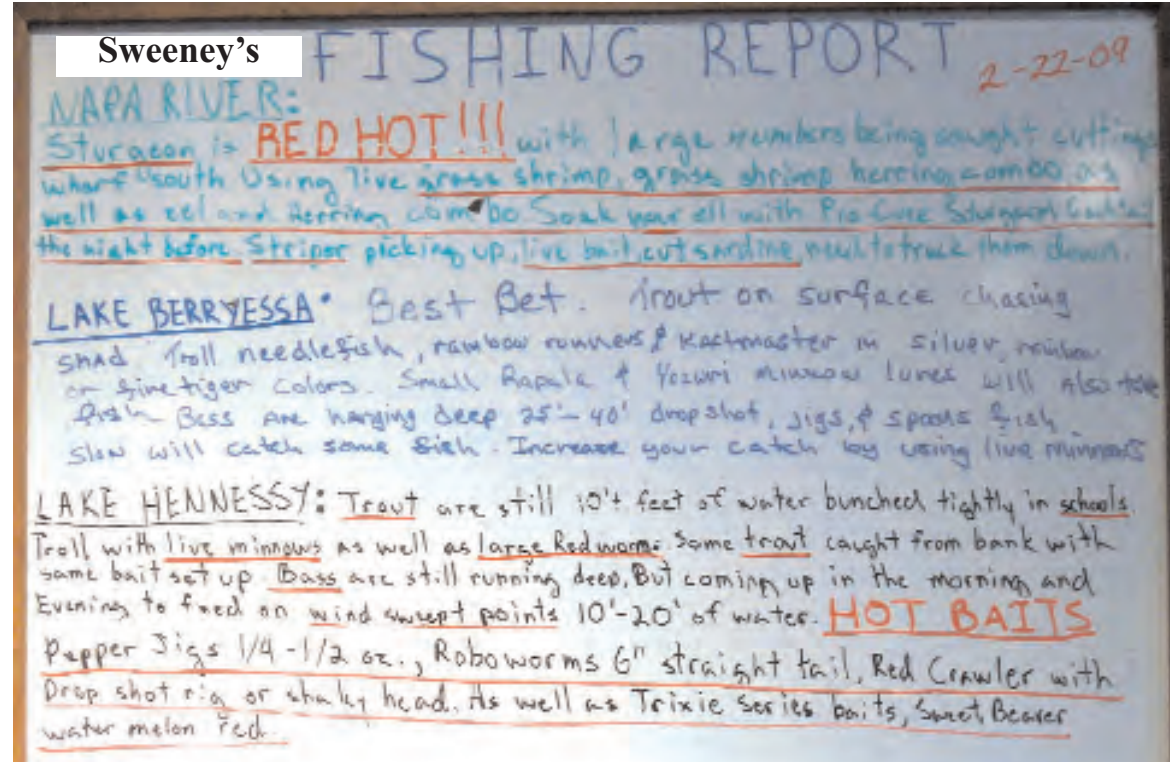 Sweeney's FISHING REPORT 2-22-09
NAPA RIVER:
Sturgeon is RED HOT!!! with large numbers being caught cuttings
wharf south Using live grass shrimp, grass shrimp herring combo as
well as eel and Herring combo. Soak your ell with Pro Cure Sturgeon
the night before. Striper picking up, live bait, cut sardine, need to track them down.
LAKE BERRYESSA: Best Bet. Trout on surface chasing
shad. Troll needlefish, rainbow runners & Kastmaster in silver, rainbow
or fire tiger colors. Small Rapala & Yozuri minnow lures will Also take
fish Bass are hanging deep 25'-40' drop shot, jigs, & spoons fish
slow will catch some fish. Increase your catch by using live minnows
LAKE HENNESSY: Trout are still 10't feet of water bunched tightly in schools.
Troll with live minnows as well as large Redworms. Some trout caught from bank with
same bait set up. Bass are still running deep, But coming up in the morning and
Evening to feed on wind swept points 10'-20' of water. HOT BAITS
Pepper Jigs 1/4-1/2 oz., Roboworms 6" straight tail, Red Crawler with
Drop shot rig or shaky head. As well as Trixie Series baits, Sweet Beaver
water melon red.